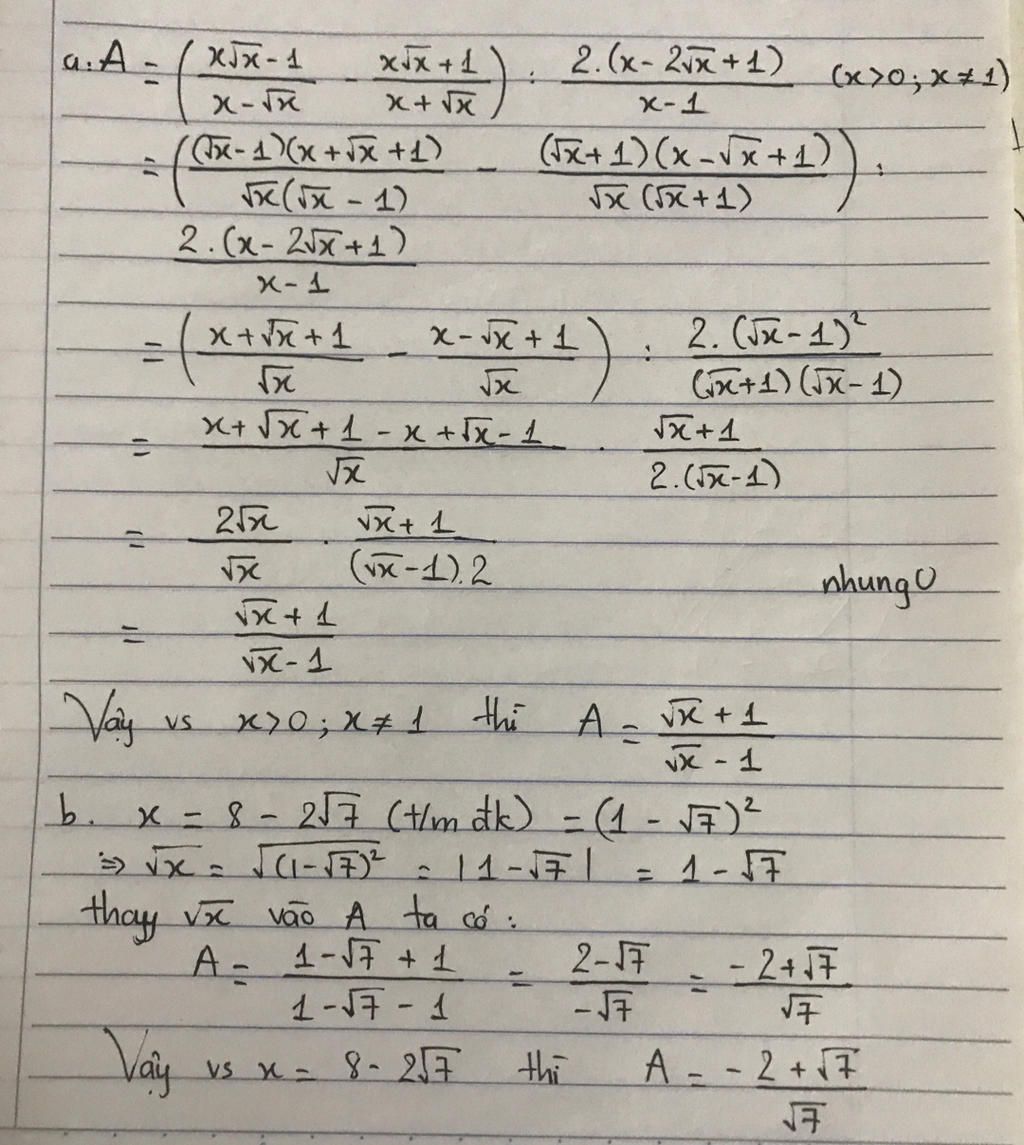 a. A = ( (x√x - 1)/(x - √x) - (x√x + 1)/(x + √x) ) : 2.(x - 2√x + 1)/(x - 1) (x>0 ; x ≠ 1)
= ( (√x - 1)(x + √x + 1)/(√x(√x - 1)) - (√x + 1)(x - √x + 1)/(√x(√x + 1)) ) :
2.(x - 2√x + 1)/(x - 1)
= ( (x + √x + 1)/√x - (x - √x + 1)/√x ) : 2.(√x - 1)²/((√x + 1)(√x - 1))
= (x + √x + 1 - x + √x - 1)/√x . (√x + 1)/(2.(√x - 1))
= 2√x/√x . (√x + 1)/((√x - 1).2)
nhung
= (√x + 1)/(√x - 1)
Vậy vs x>0 ; x ≠ 1 thì A = (√x + 1)/(√x - 1)
b. x = 8 - 2√7 (t/m đk) = (1 - √7)²
⇒ √x = √((1 - √7)²) = |1 - √7| = 1 - √7
thay √x vào A ta có :
A = (1 - √7 + 1)/(1 - √7 - 1) = (2 - √7)/(-√7) = (-2 + √7)/√7
Vậy vs x = 8 - 2√7 thì A = (-2 + √7)/√7